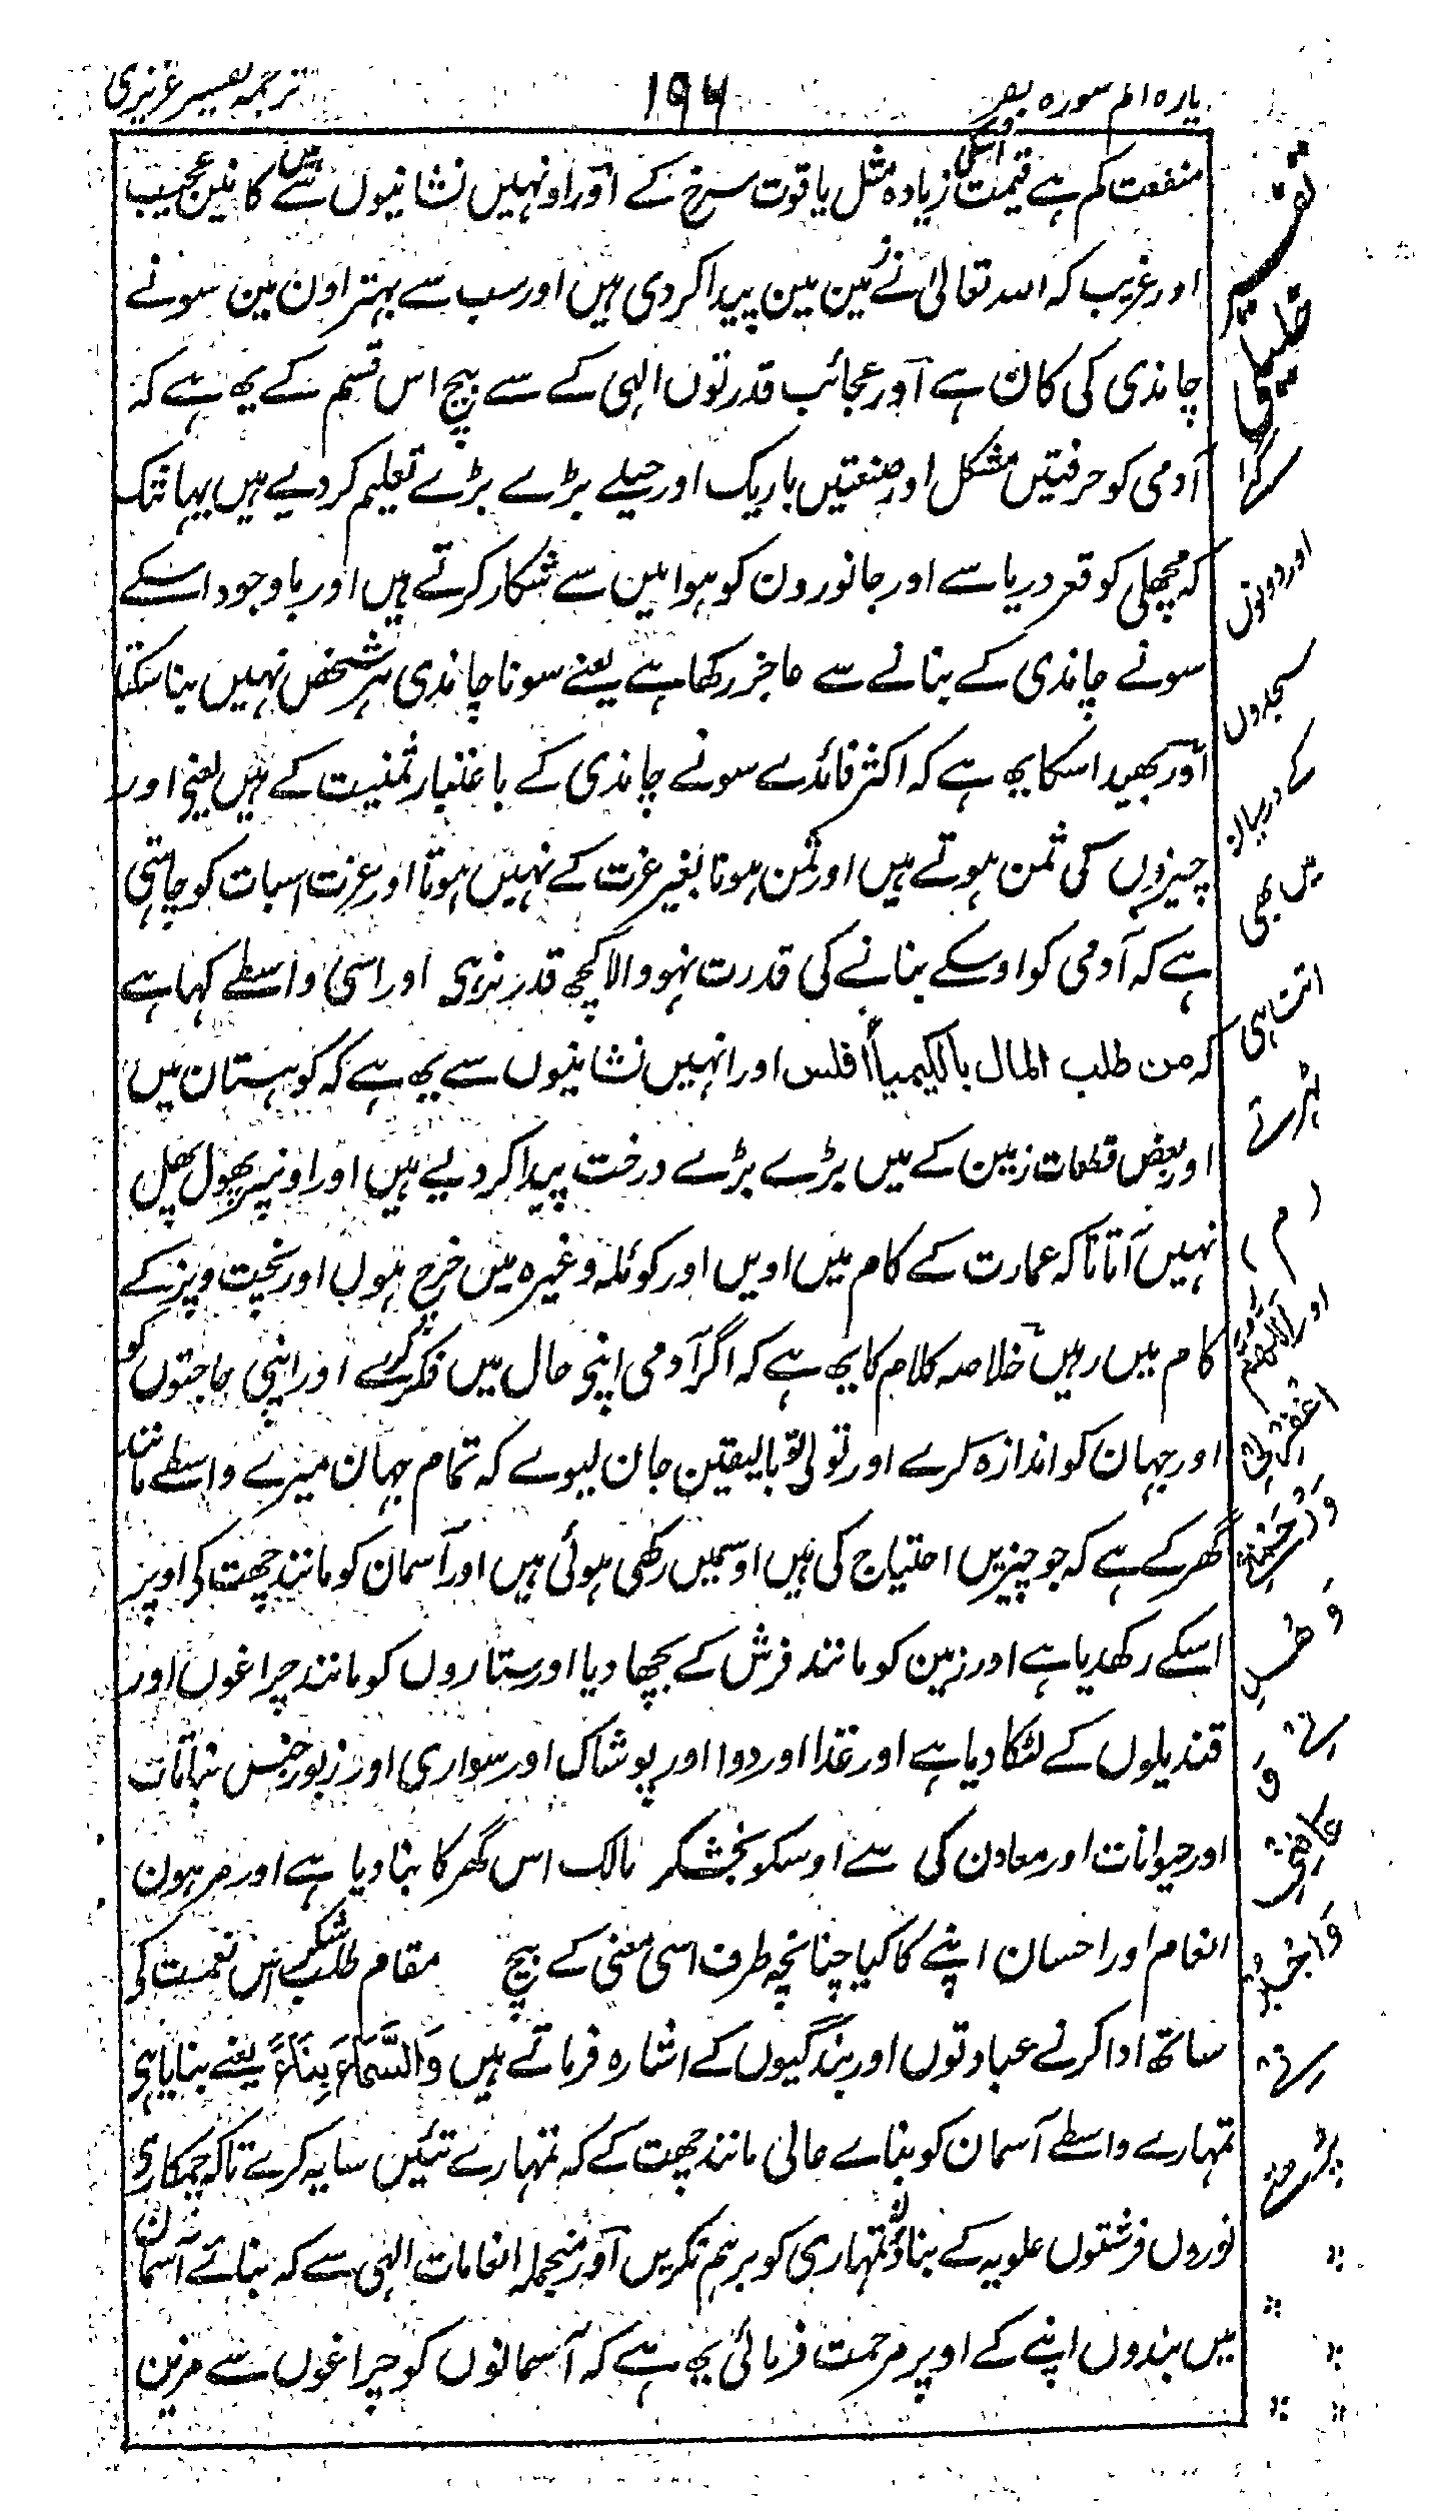 پارہ الم سورہ بقر
۱۹۶
ترجمہ تفسیر عزیزی
منفعت کم ہے قیمت اسکی زیادہ مثل یاقوت سرخ کے اور اونہیں نشانیوں میں سے کانین عجیب
اور غریب کہ اللہ تعالیٰ نے زمین مین پیدا کر دی ہیں اور سب سے بہتر اون مین سونے
چاندی کی کان ہے اور عجائب قدرتوں الہی کے سے بیچ اس قسم کے یہ ہے کہ
آدمی کو حرفتیں مشکل اور صنعتیں باریک اور حیلے بڑے بڑے تعلیم کر دیے ہیں یہانتک
کہ مچھلی کو قعر دریا سے اور جانورون کو ہوا مین سے شکار کرتے ہیں اور باوجود اسکے
سونے چاندی کے بنانے سے عاجز رکھا ہے یعنے سونا چاندی ہر شخص نہیں بنا سکتا
اور بھید اسکا یہ ہے کہ اکثر فائدے سونے چاندی کے باعتبار ثمنیت کے ہیں یعنی اور
چیزوں کی ثمن ہوتے ہیں اور ثمن ہونا بغیر عزت کے نہیں ہوتا اور عزت اسبات کو چاہتی
ہے کہ آدمی کو اوسکے بنانے کی قدرت نہو والا کچھ قدر نرہی اور اسی واسطے کہا ہے
کہ من طلب المال بالکیمیا أفلس اور انہیں نشانیوں سے یہ ہے کہ کوہستان میں
اور بعض قطعات زمین کے میں بڑے بڑے درخت پیدا کر دیے ہیں اور اونپر پھول پھل
نہیں آتا تاکہ عمارت کے کام میں اویں اور کوئلہ وغیرہ میں خرچ ہوں اور پخت و پز کے
کام میں رہیں خلاصہ کلام کا یہ ہے کہ اگر آدمی اپنی حال میں فکر کرے اور اپنی حاجتوں کو
اور جہان کو اندازہ کرے اور تولے تو بالیقین جان لیوے کہ تمام جہان میرے واسطے مانند
گھر کے ہے کہ جو چیزیں احتیاج کی ہیں اوسمیں رکھی ہوئی ہیں اور آسمان کو مانند چھت کی اوپر
اسکے رکھدیا ہے اور زمین کو مانند فرش کے بچھا دیا اور ستاروں کو مانند چراغوں اور
قندیلوں کے لٹکا دیا ہے اور غذا اور دوا اور پوشاک اور سواری اور زیور جنس نباتات
اور حیوانات اور معادن کی سے اوسکو بخشکر مالک اس گھر کا بنا دیا ہے اور مرہون
انعام اور احسان اپنے کا کیا چنانچہ طرف اسی معنی کے بیچ مقام طلب شکر اس نعمت کی
ساتھ ادا کرنے عبادتوں اور بندگیوں کے اشارہ فرماتے ہیں وَالسَّمَاءَ بِنَاءً یعنے بنایا ہی
تمہارے واسطے آسمان کو بناے عالی مانند چھت کے کہ تمہارے تئیں سایہ کرے تاکہ چمکاری
نوروں فرشتوں علویہ کے بناؤن تمہاری کو برہم نکریں اور منجملہ انعامات الہی سے کہ بنائے آسمان
میں بندوں اپنے کے اوپر مرحمت فرمائی یہ ہے کہ آسمانوں کو چراغوں سے مزین
سرکہا
اور دونوں
سجدوں
کے درمیان
میں بھی
اتنا ہی
ٹہرتے
(م)
اور اللهم
اغفرلی
وَارْحَمْنِی
وَ
عافنی
پڑھتے